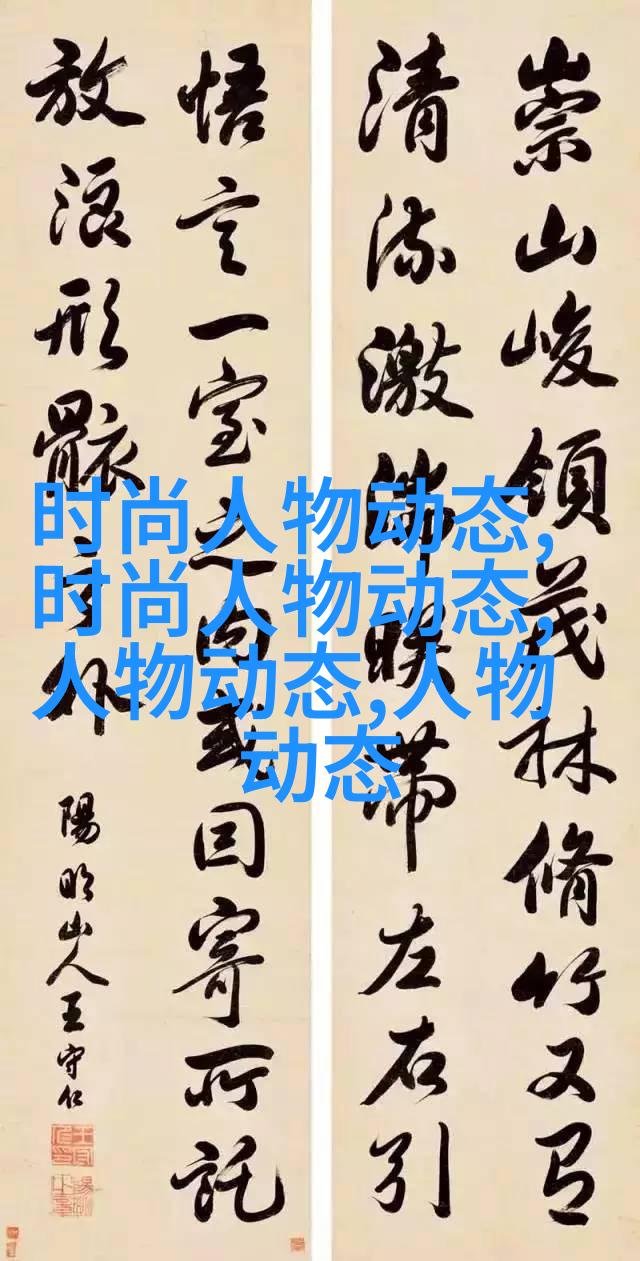 崇山峻領茂林脩竹又有
清流激湍暎帶左右引
悟言一室之內或因寄所託
放浪形骸之外
陽明山人王守仁
时尚人物动态,
时尚人物动态,
人物动态,人物
动态